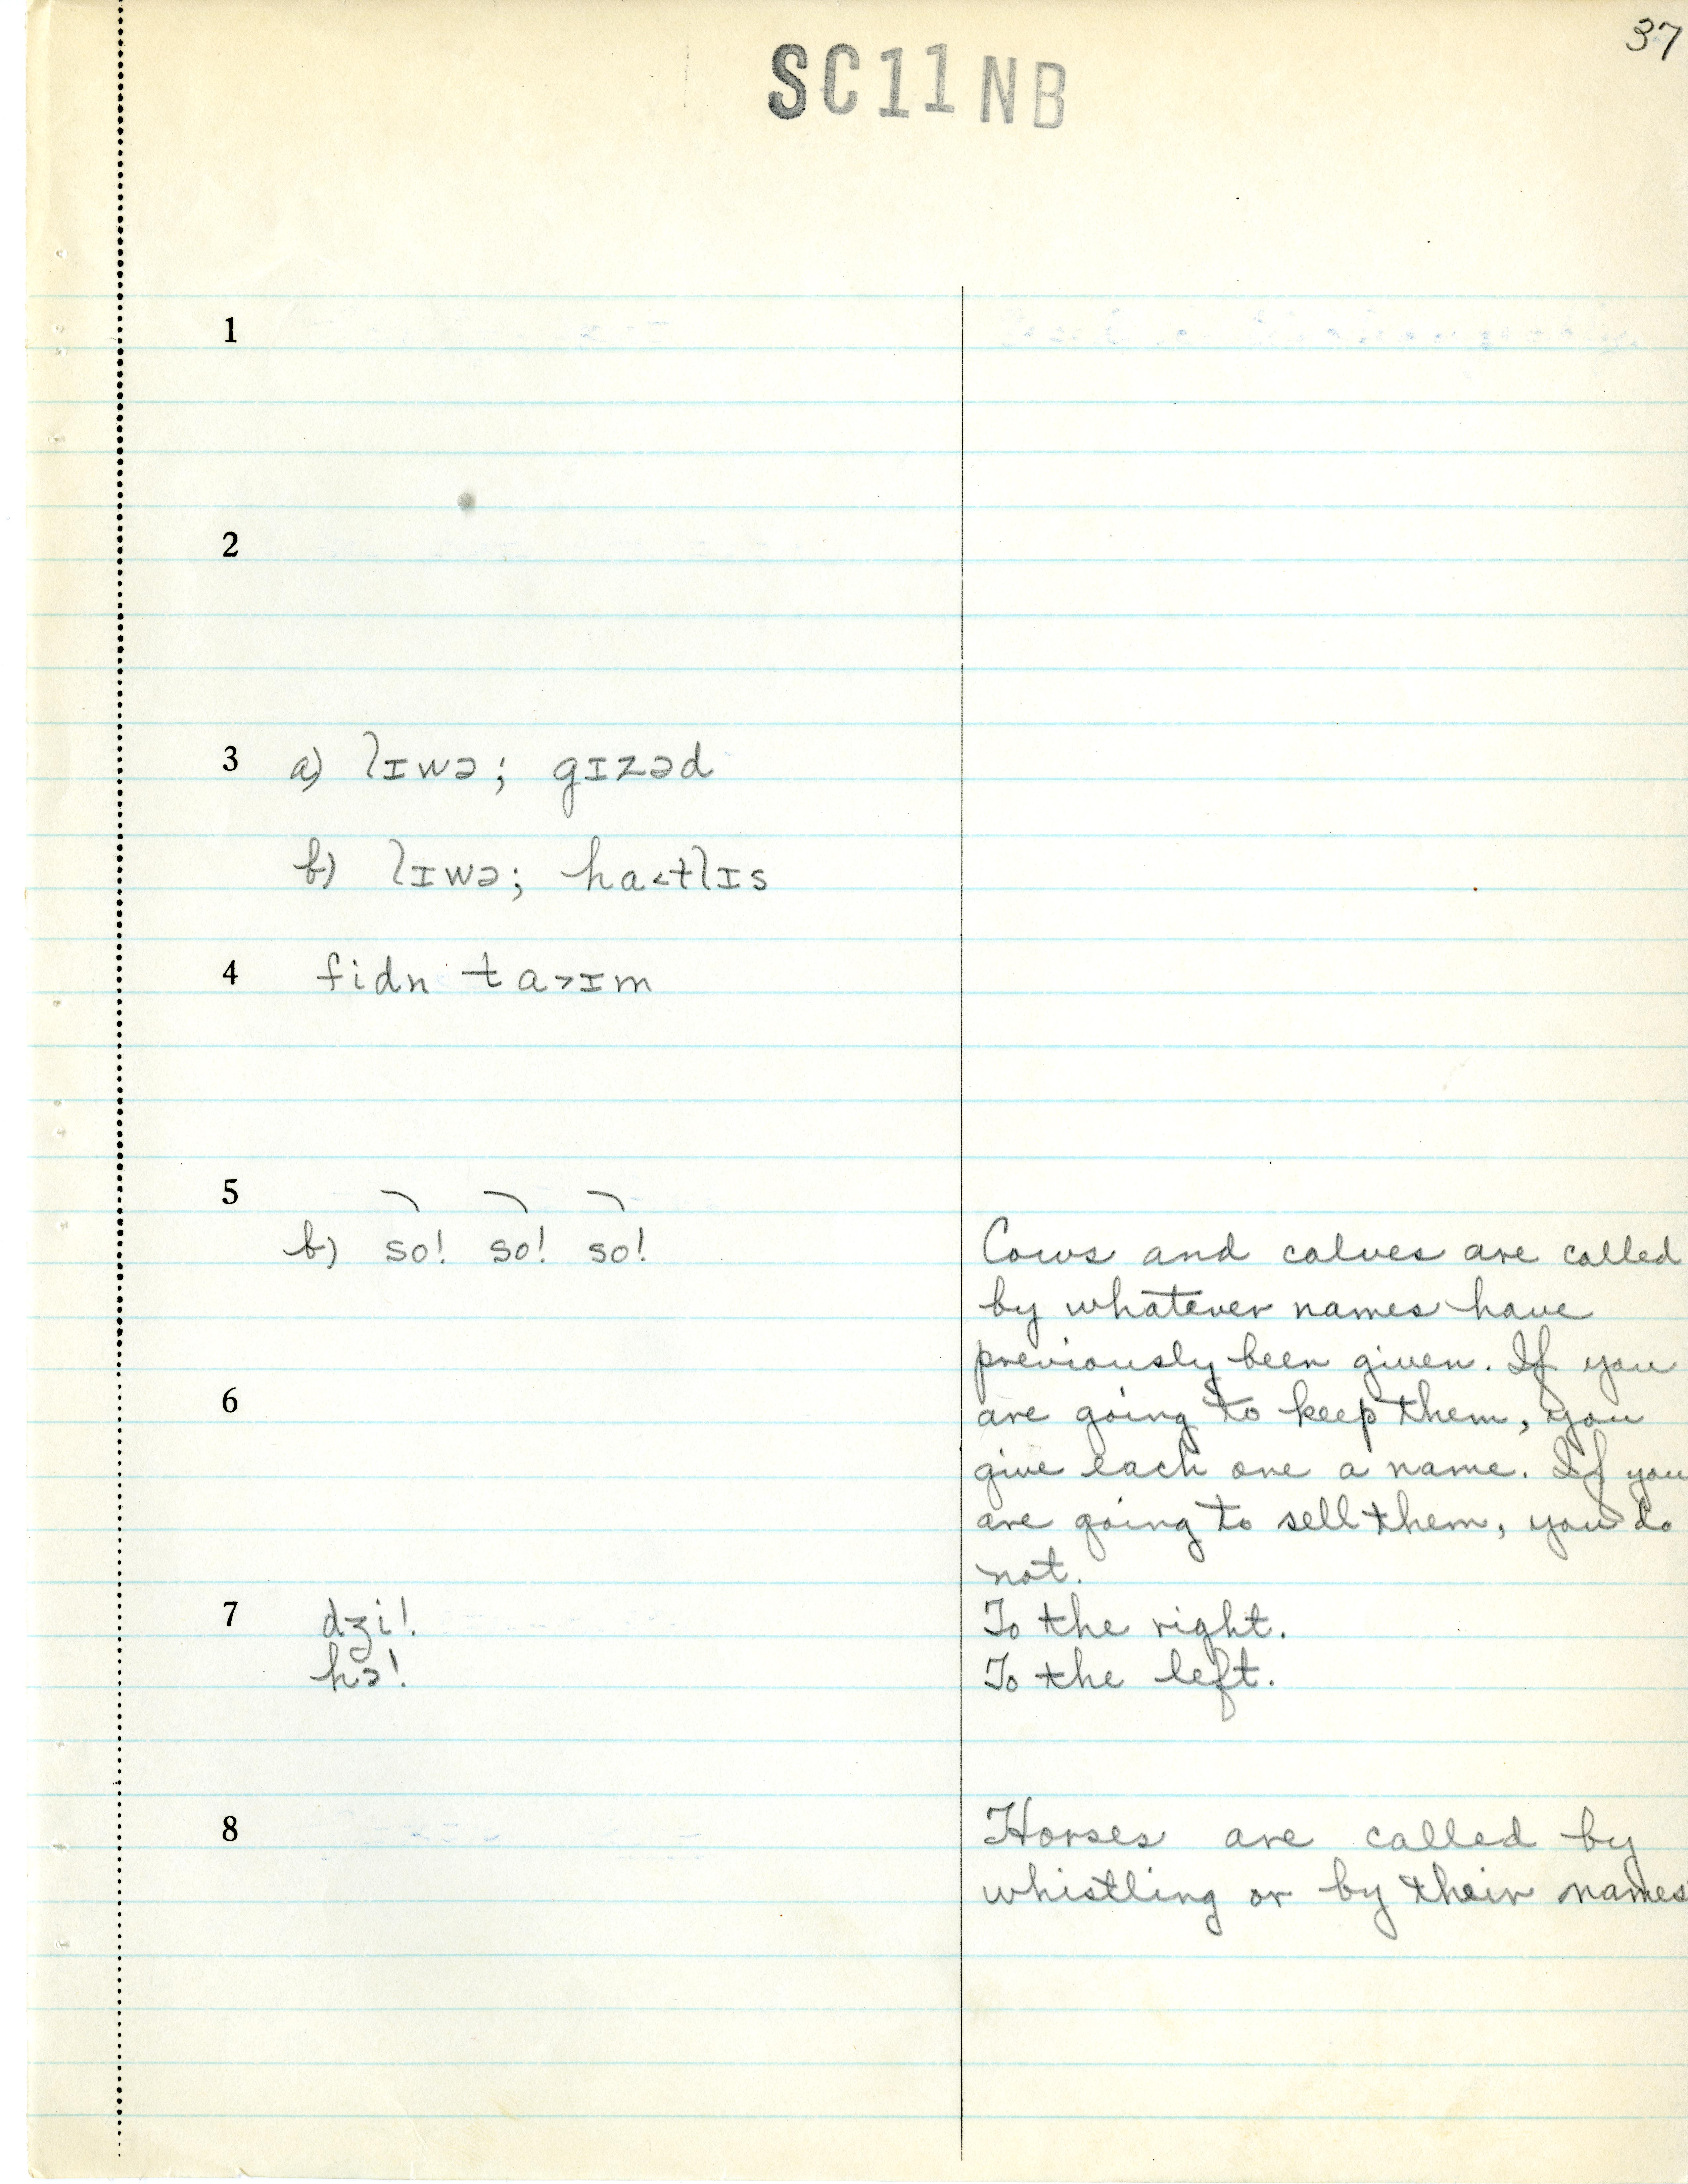 37
SC11NB
1
2
3 a) lɪwə; gɪzəd
b) lɪwə; ha<tlɪs
4 fidn ta>ɪm
5
b) so! so! so!
Cows and calves are called
by whatever names have
previously been given. If you
6 are going to keep them, you
give each one a name. If you
are going to sell them, you do
not.
7 dʒi! To the right.
hɔ! To the left.
8 Horses are called by
whistling or by their names